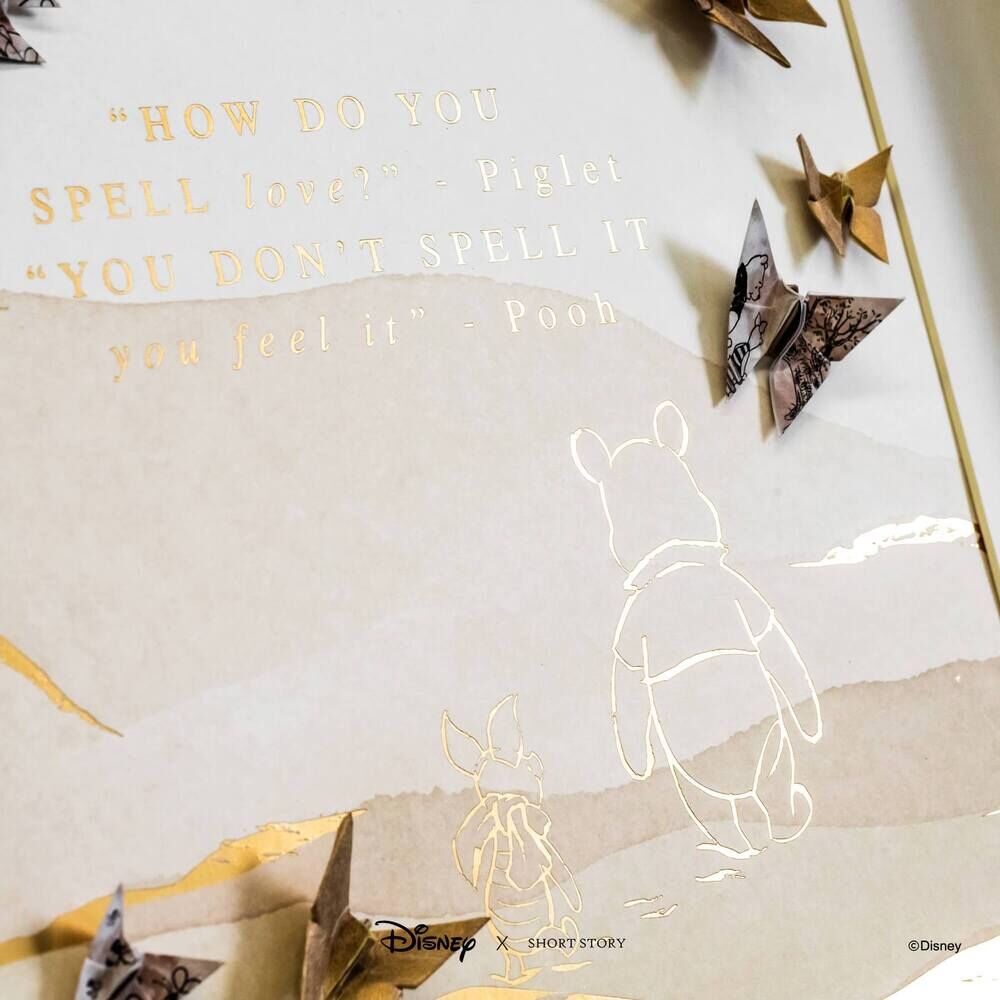 “HOW DO YOU
SPELL love?” - Piglet
“YOU DON’T SPELL IT
you feel it” - Pooh
Disney X SHORT STORY
©Disney